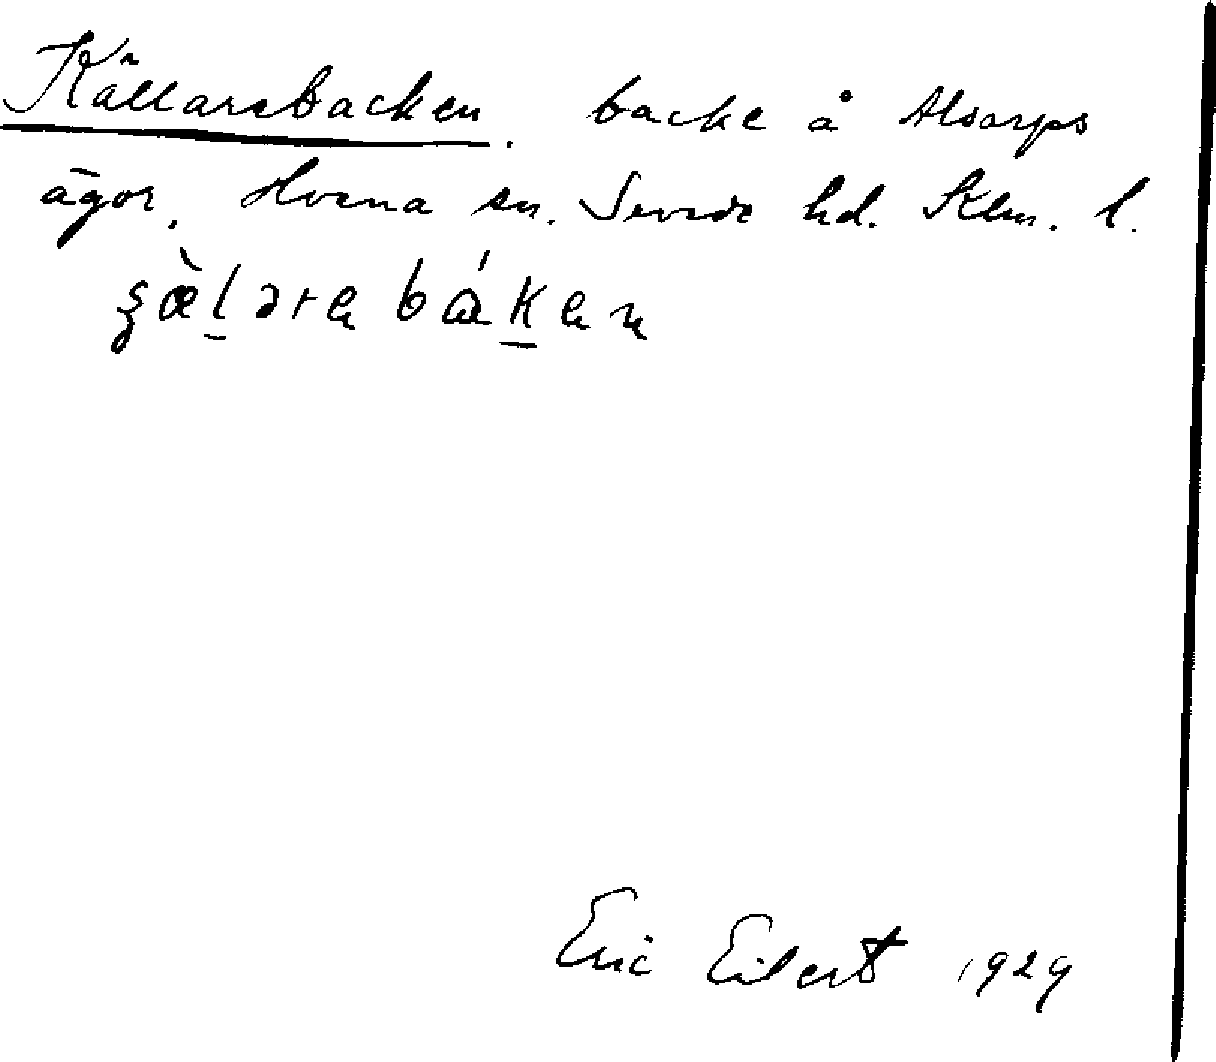 Källarebacken. backe å Alsarps
ägor. Hvena sn. Sevede hd. Klm. l.
Eric Eilert 1929